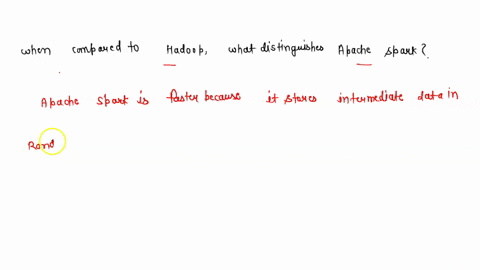 when compared to Hadoop, what distinguishes Apache spark?
Apache spark is faster because it stores intermediate data in
Rand